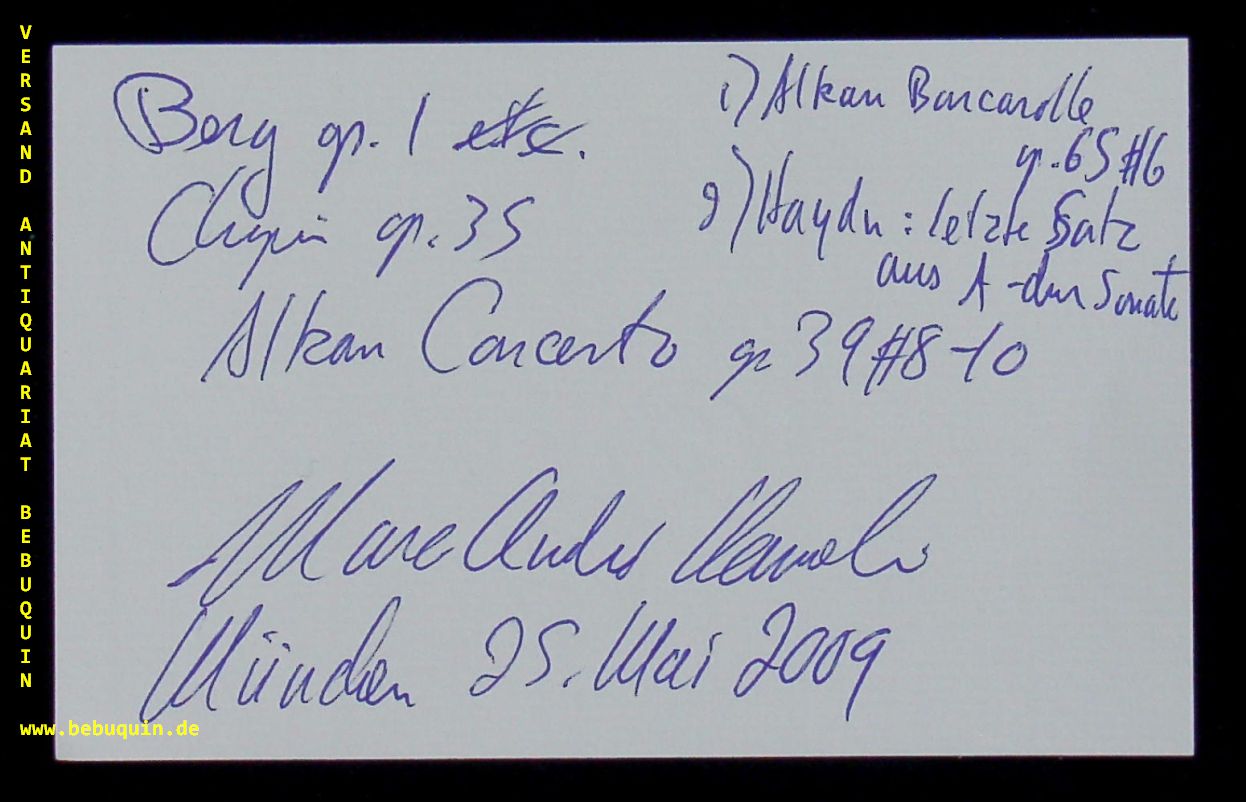 Berg op. 1 etc.
Chopin op. 35
Alkan Concerto op 39 #8-10
1) Alkan Barcarolle
op. 65 #6
2) Haydn : letzte Satz
aus A-dur Sonate
Marc André Hamelin
München 25. Mai 2009
VERSAND ANTIQUARIAT BEBUQUIN
www.bebuquin.de